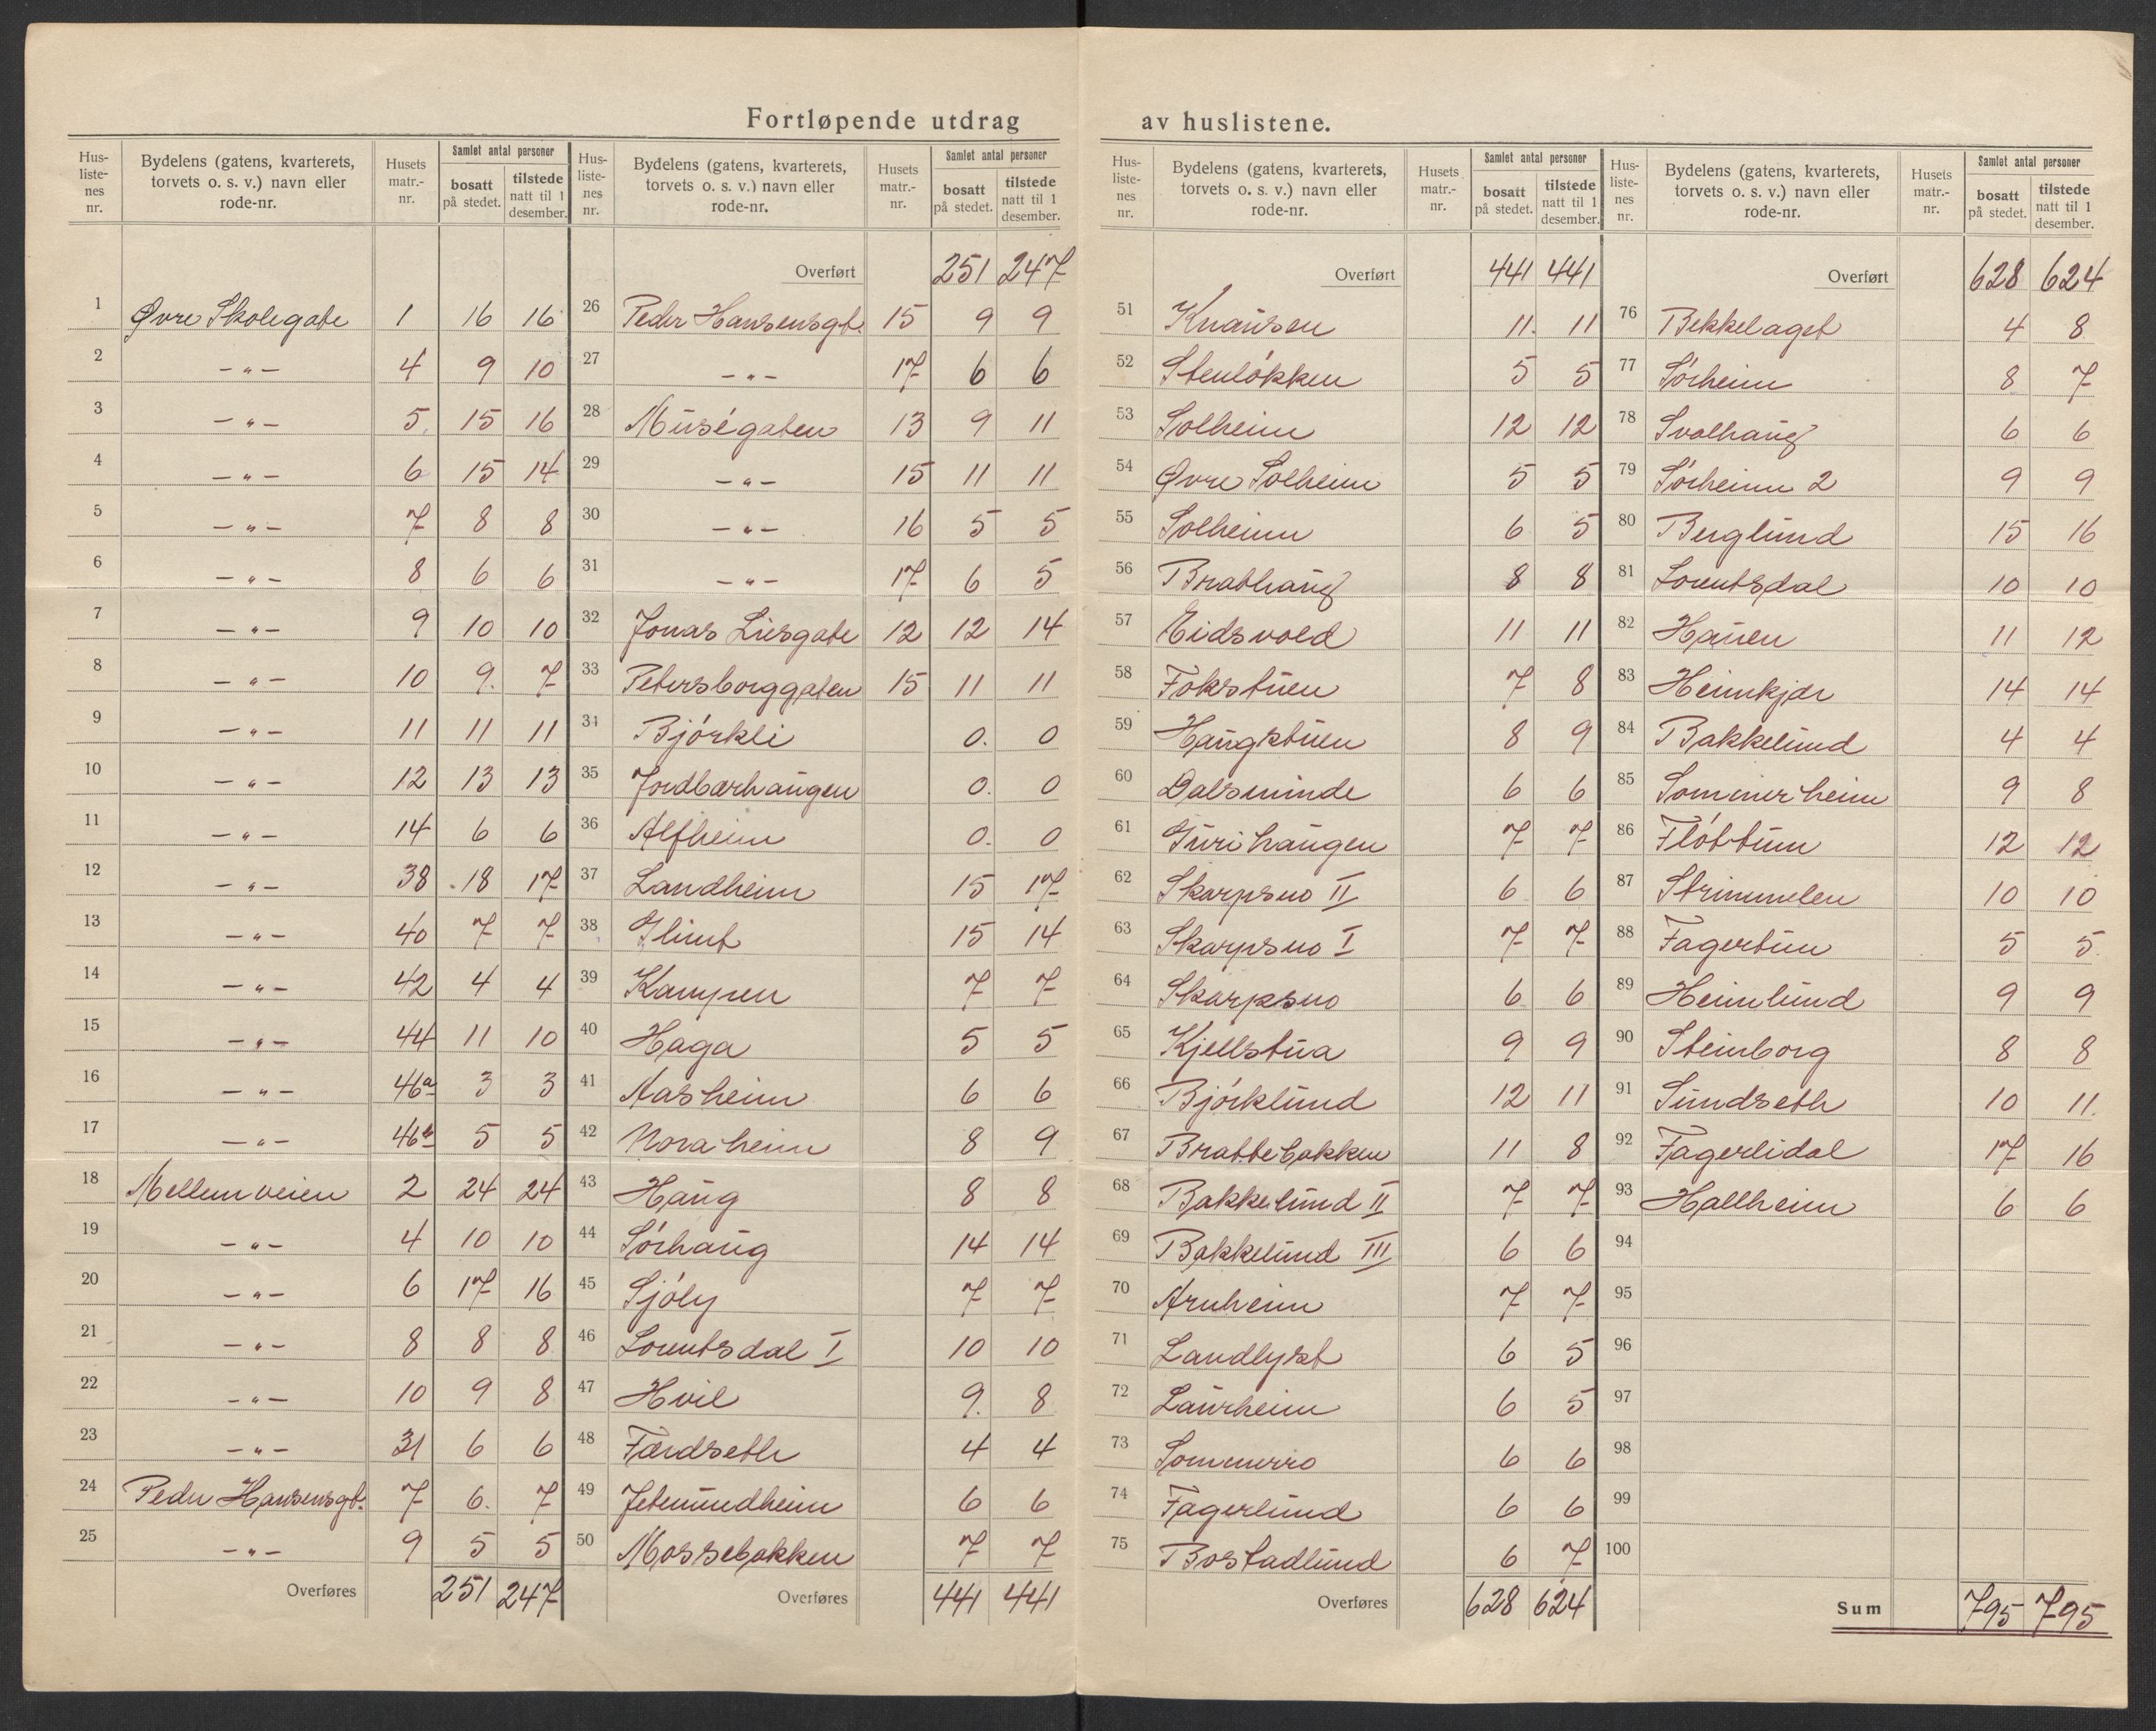 Fortløpende utdrag av huslistene.
Hus-listenes nr. | Bydelens (gatens, kvarterets, torvets o. s. v.) navn eller rode-nr. | Husets matr.-nr. | Samlet antal personer: bosatt på stedet. | tilstede natt til 1 desember.
1 Øvre Skolegate 1 16 16
2 — " — 4 9 10
3 — " — 5 15 16
4 — " — 6 15 14
5 — " — 7 8 8
6 — " — 8 6 6
7 — " — 9 10 10
8 — " — 10 9 7
9 — " — 11 11 11
10 — " — 12 13 13
11 — " — 14 6 6
12 — " — 38 18 17
13 — " — 40 7 7
14 — " — 42 4 4
15 — " — 44 11 10
16 — " — 46a 3 3
17 — " — 46b 5 5
18 Mellemveien 2 24 24
19 — " — 4 10 10
20 — " — 6 17 16
21 — " — 8 8 8
22 — " — 10 9 8
23 — " — 31 6 6
24 Peder Hansensgt. 7 6 7
25 — " — 9 5 5
Overføres 251 247
Hus-listenes nr. | Bydelens (gatens, kvarterets, torvets o. s. v.) navn eller rode-nr. | Husets matr.-nr. | Samlet antal personer: bosatt på stedet. | tilstede natt til 1 desember.
Overført 251 247
26 Peder Hansensgt. 15 9 9
27 — " — 17 6 6
28 Muségaten 13 9 11
29 — " — 15 11 11
30 — " — 16 5 5
31 — " — 17 6 5
32 Jonas Liesgate 12 12 14
33 Petersborggaten 15 11 11
34 Bjórkli 0 0
35 Jordbærhaugen 0 0
36 Alfheim 0 0
37 Landheim 15 17
38 Glimt 15 14
39 Kampen 7 7
40 Haga 5 5
41 Aasheim 6 6
42 Noraheim 8 9
43 Haug 8 8
44 Sórhaug 14 14
45 Sjóly 7 7
46 Lorentsdal I 10 10
47 Hvil 9 8
48 Færdseth 4 4
49 Jetmundheim 6 6
50 Mossebakken 7 7
Overføres 441 441
Hus-listenes nr. | Bydelens (gatens, kvarterets, torvets o. s. v.) navn eller rode-nr. | Husets matr.-nr. | Samlet antal personer: bosatt på stedet. | tilstede natt til 1 desember.
Overført 441 441
51 Knausen 11 11
52 Stenlókken 5 5
53 Solheim 12 12
54 Øvre Solheim 5 5
55 Solheim 6 5
56 Brathaug 8 8
57 Eidsvold 11 11
58 Fokstuen 7 8
59 Haugstuen 8 9
60 Dalsminde 6 6
61 Gurihaugen 7 7
62 Skarpsno II 6 6
63 Skarpsno I 7 7
64 Skarpsno 6 6
65 Kjellstua 9 9
66 Bjórklund 12 11
67 Brattebakken 11 8
68 Bakkelund II 7 7
69 Bakkelund III 6 6
70 Arnheim 7 7
71 Landlyst 6 5
72 Laurheim 6 5
73 Sommerro 6 6
74 Fagerlund 6 6
75 Bostadlund 6 7
Overføres 628 624
Hus-listenes nr. | Bydelens (gatens, kvarterets, torvets o. s. v.) navn eller rode-nr. | Husets matr.-nr. | Samlet antal personer: bosatt på stedet. | tilstede natt til 1 desember.
Overført 628 624
76 Bekkelaget 4 8
77 Sórheim 8 7
78 Svalhaug 6 6
79 Sórheim 2 9 9
80 Berglund 15 16
81 Lorentsdal 10 10
82 Hauen 11 12
83 Heimkjær 14 14
84 Bakkelund 4 4
85 Sommerheim 9 8
86 Flóttum 12 12
87 Strimmelen 10 10
88 Fagertun 5 5
89 Heimlund 9 9
90 Steinborg 8 8
91 Sundseth 10 11
92 Fagerlidal 17 16
93 Hallheim 6 6
94
95
96
97
98
99
100
Sum 795 795